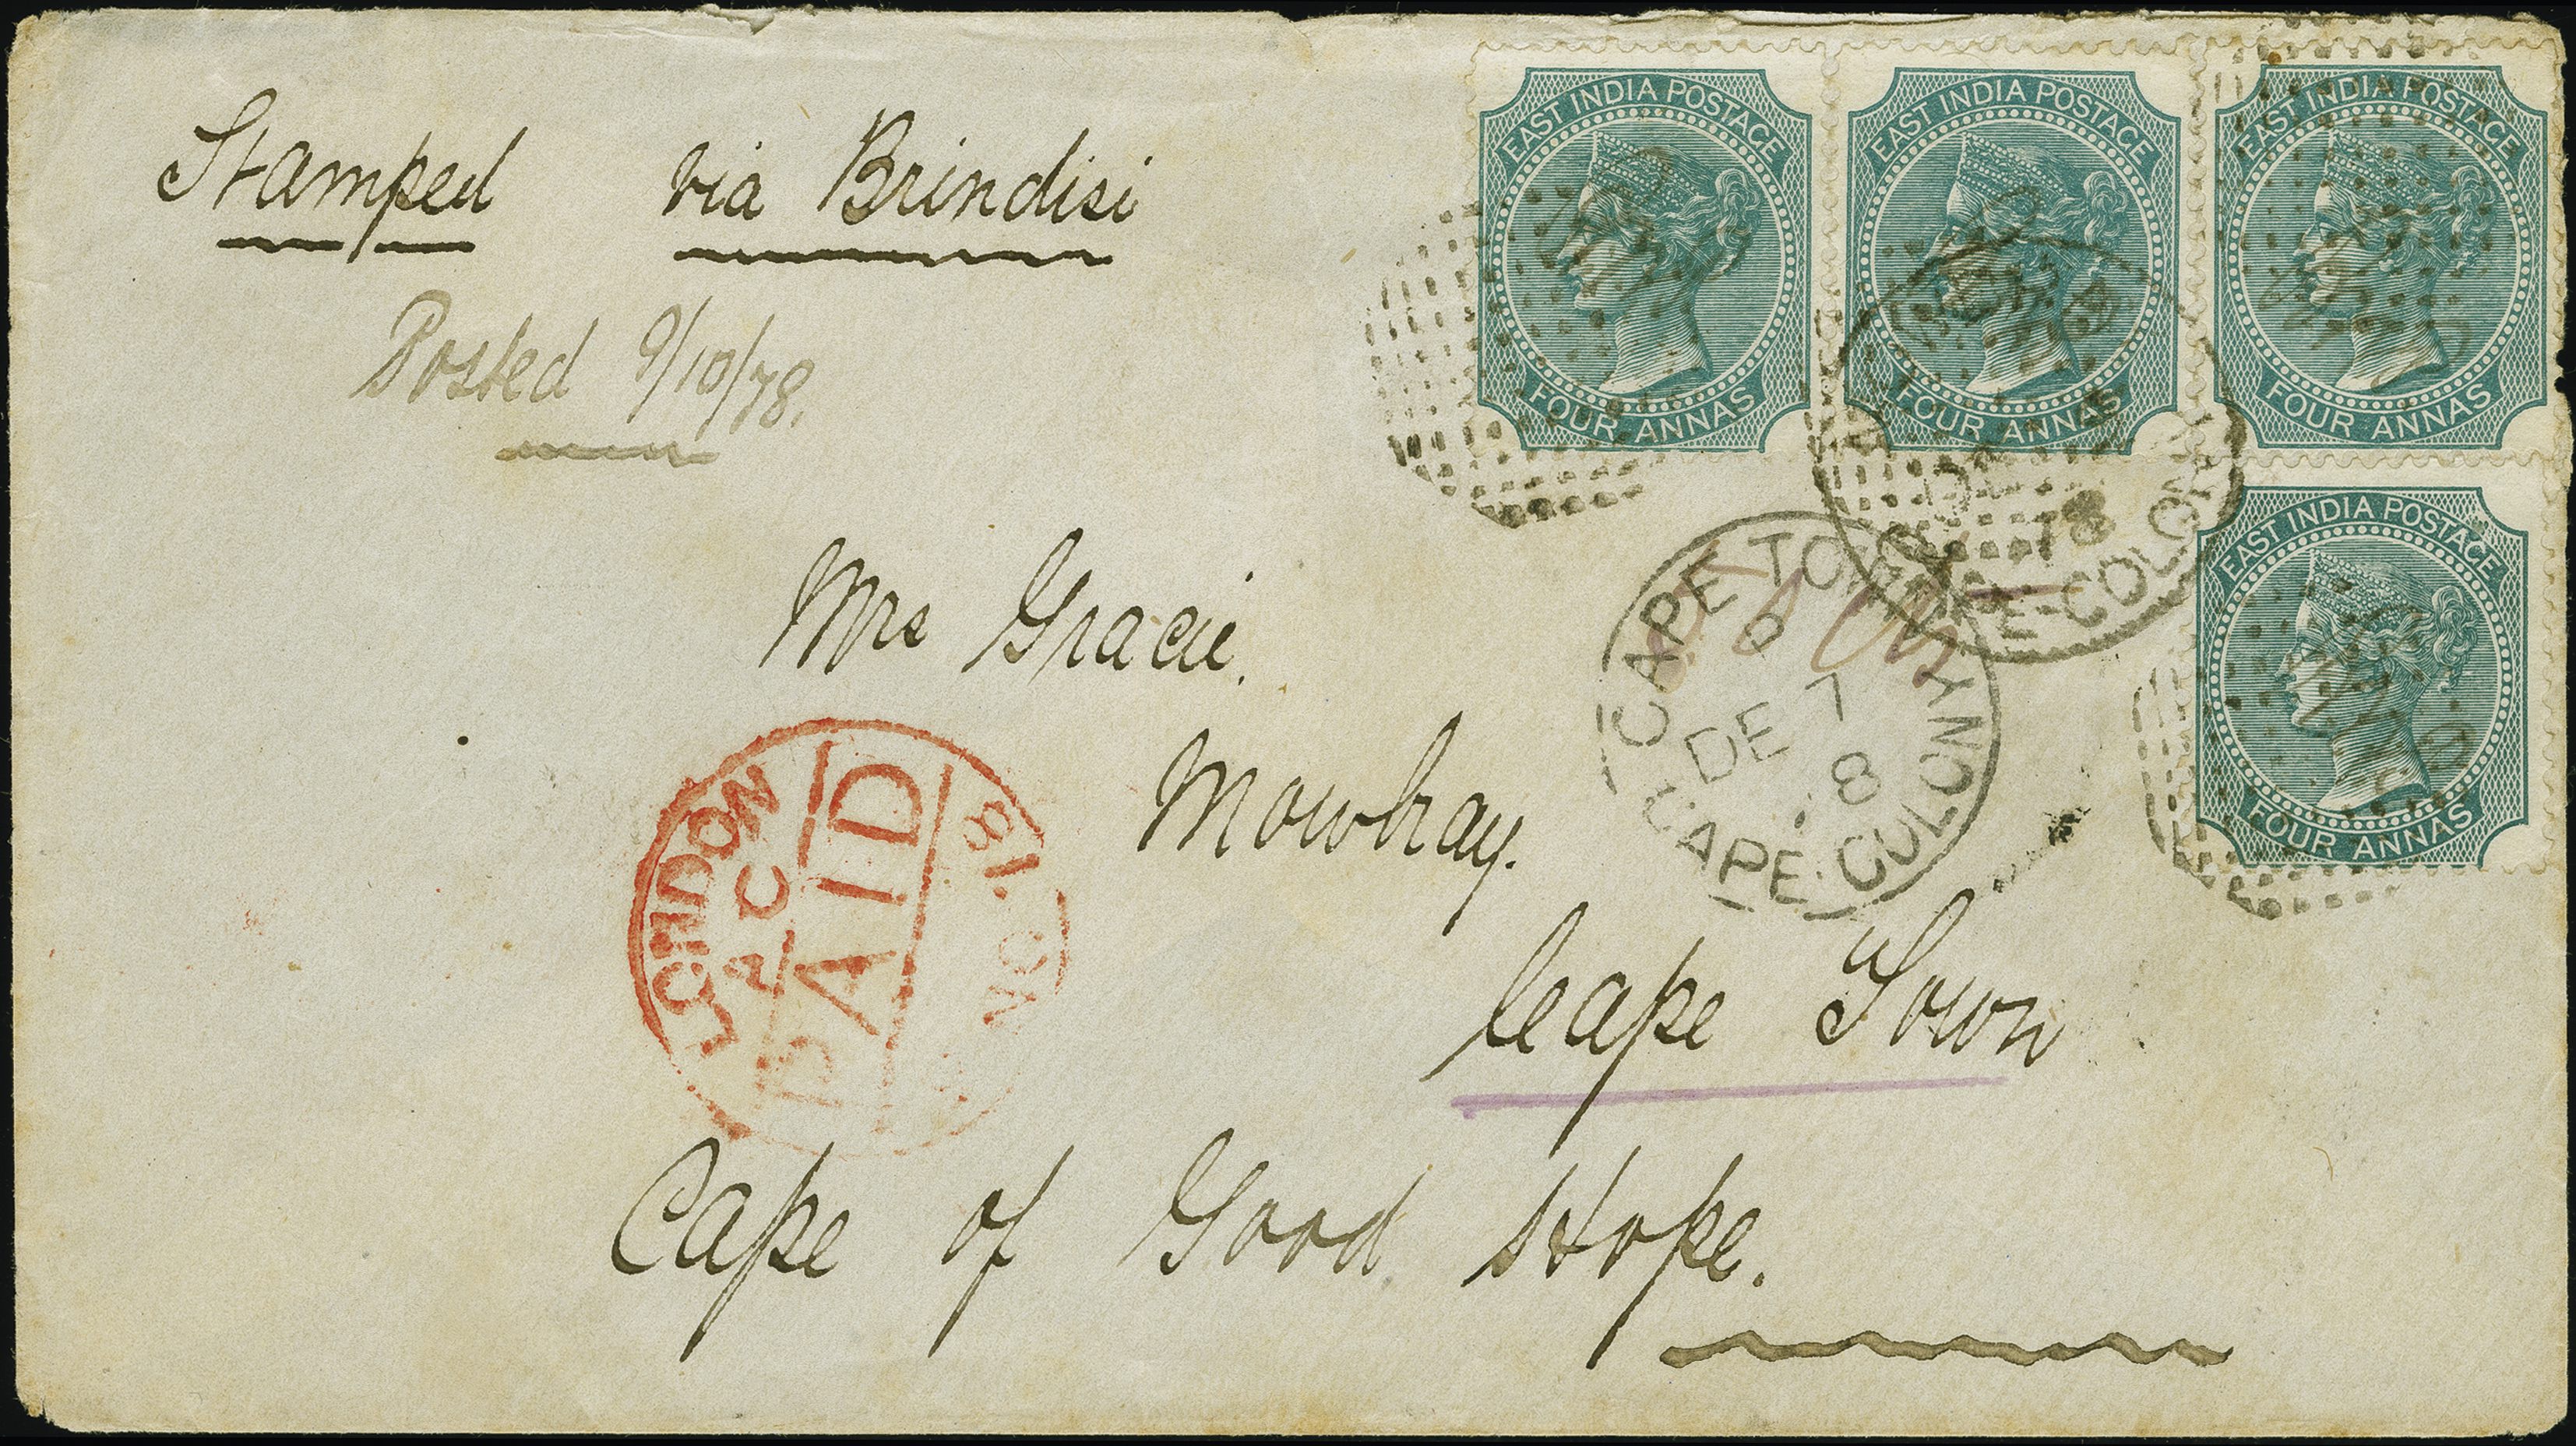 Stamped via Brindisi
Posted 9/10/78.
EAST INDIA POSTAGE
FOUR ANNAS
EAST INDIA POSTAGE
FOUR ANNAS
EAST INDIA POSTAGE
FOUR ANNAS
EAST INDIA POSTAGE
FOUR ANNAS
78
CAPE COLONY
CAPE TOWN
DE 7
8
CAPE COLONY
Mrs Gracie.
Mowbray.
Cape Town
Cape of Good Hope.
LONDON
PAID